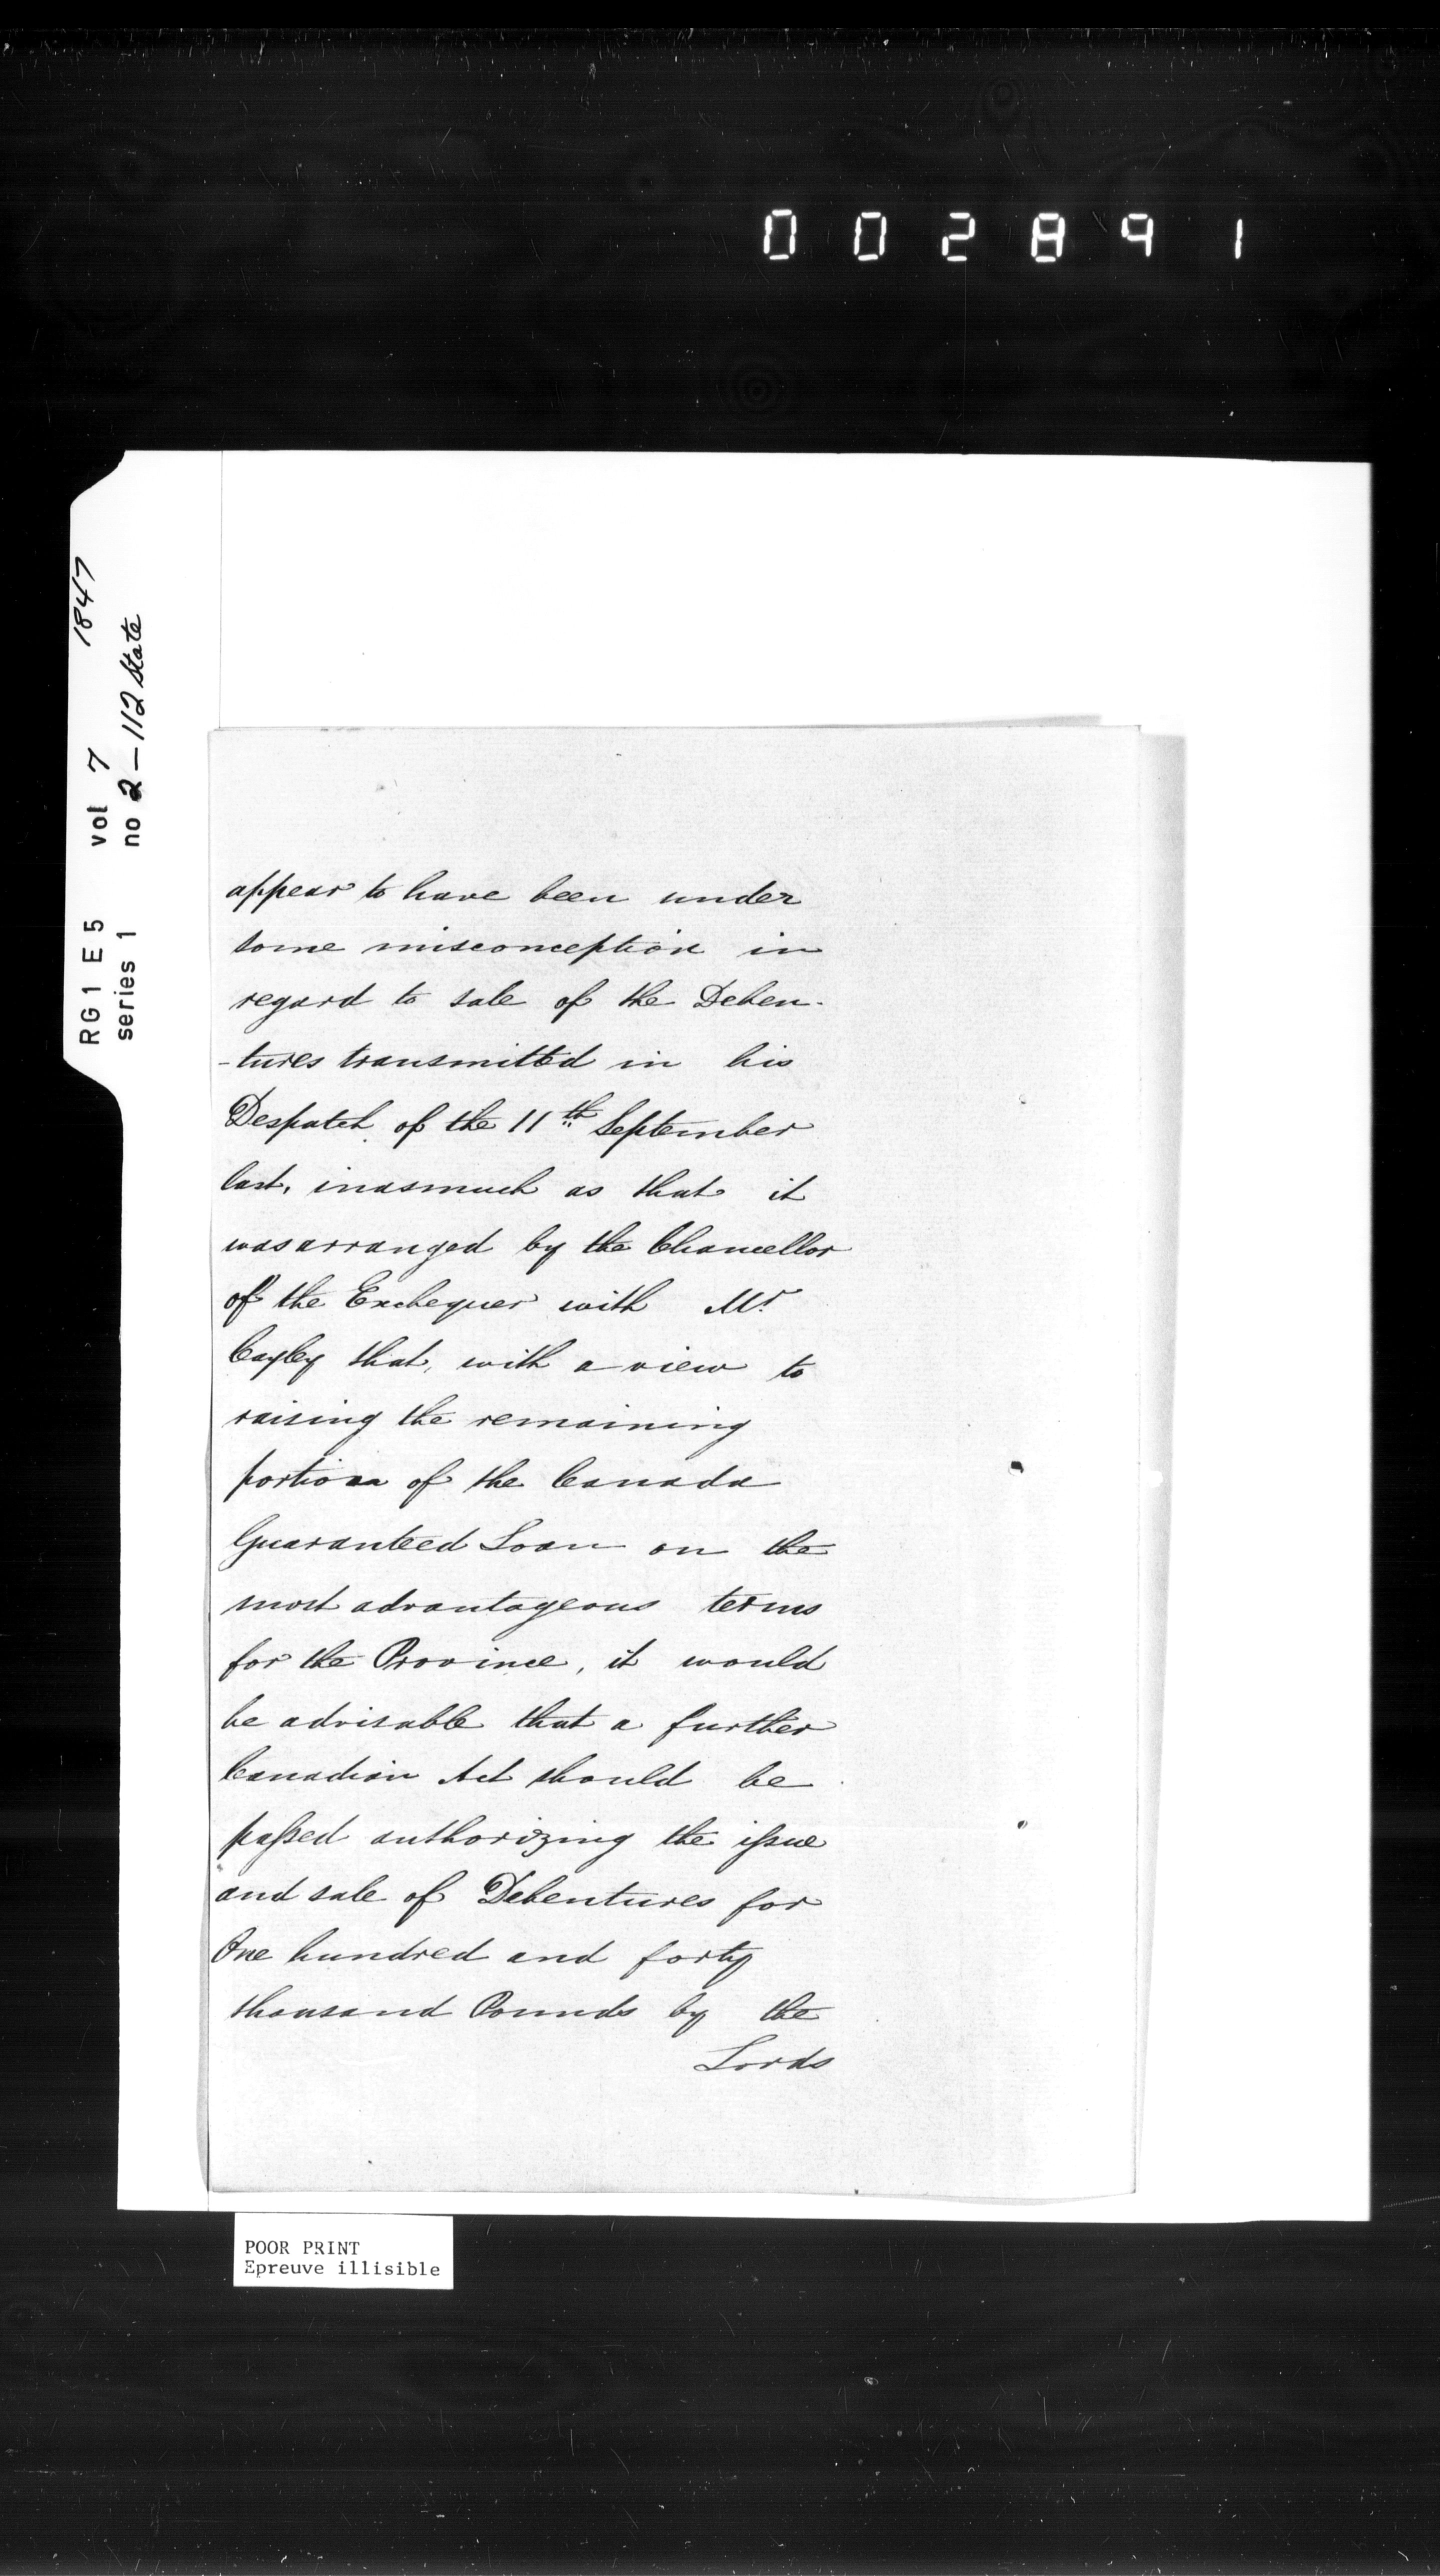 002891
RG1 E5 vol 7 1847
series 1 no 2-112 State
appear to have been under
some misconception in
regard to sale of the Deben-
-tures transmitted in his
Despatch of the 11th September
last, inasmuch as that it
was arranged by the Chancellor
of the Exchequer with Mr
Cayley that, with a view to
raising the remaining
portion of the Canada
Guaranteed Loan on the
most advantageous terms
for the Province, it would
be advisable that a further
Canadian Act should be
passed authorizing the issue
and sale of Debentures for
One hundred and forty
thousand Pounds by the
Lords
POOR PRINT
Epreuve illisible